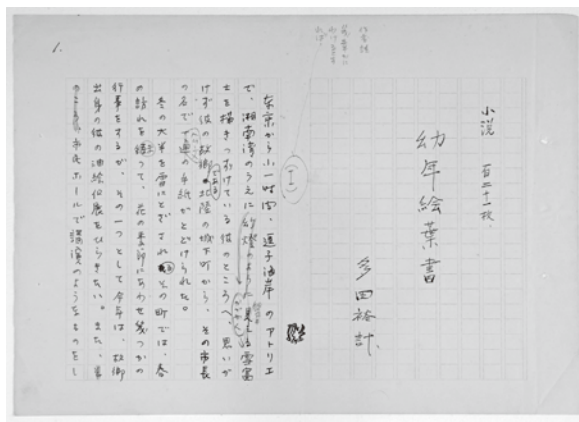 小説 百二十一枚.
幼年絵葉書
多田裕計
(一)
東京から小一時間、逗子海岸のアトリエ
で、湘南湾のうえに幻燈のように見える雪富
士を描きつづけている彼のところへ、思いが
けず彼の故郷である北陸の城下町から、その市長
の名で一通の手紙がとどけられた。
冬の大半を雪にとざされるその町では、春
の訪れを待って、花の季節にあわせ幾つかの
行事をするが、その一つとして今年は、故郷
出身の彼の油絵個展をひらきたい。また、
市民ホールで講演のようなものをし
1.